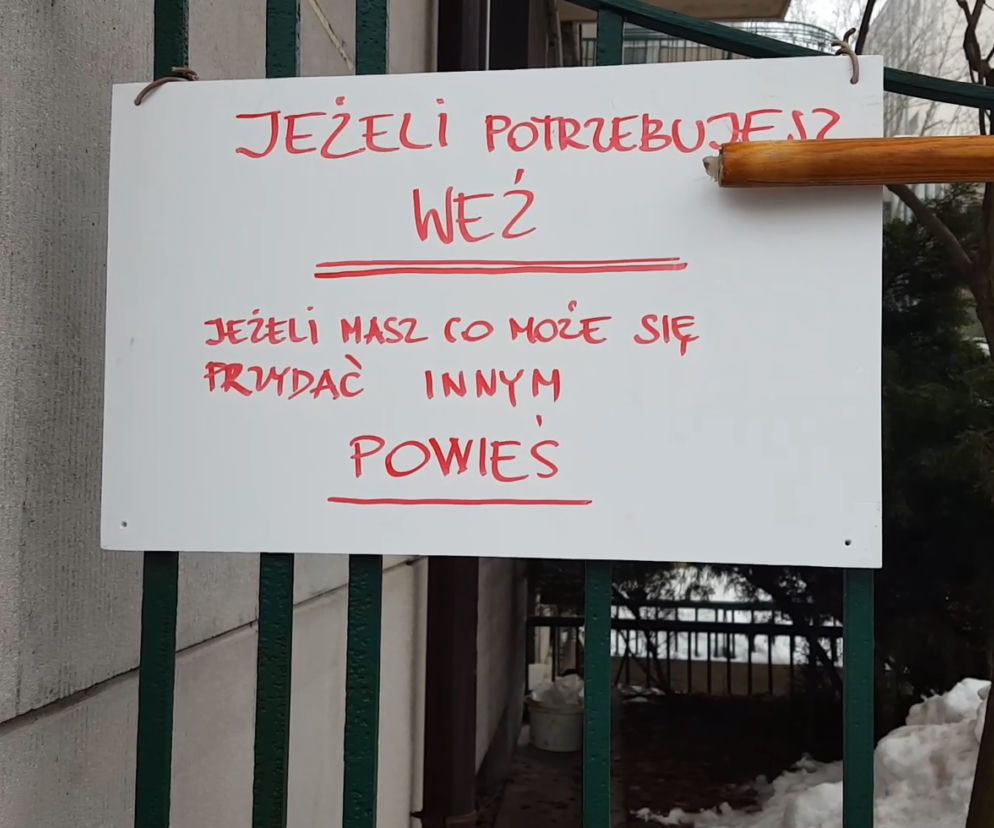 JEŻELI POTRZEBUJESZ
WEŹ
JEŻELI MASZ CO MOŻE SIĘ
PRZYDAĆ INNYM
POWIEŚ